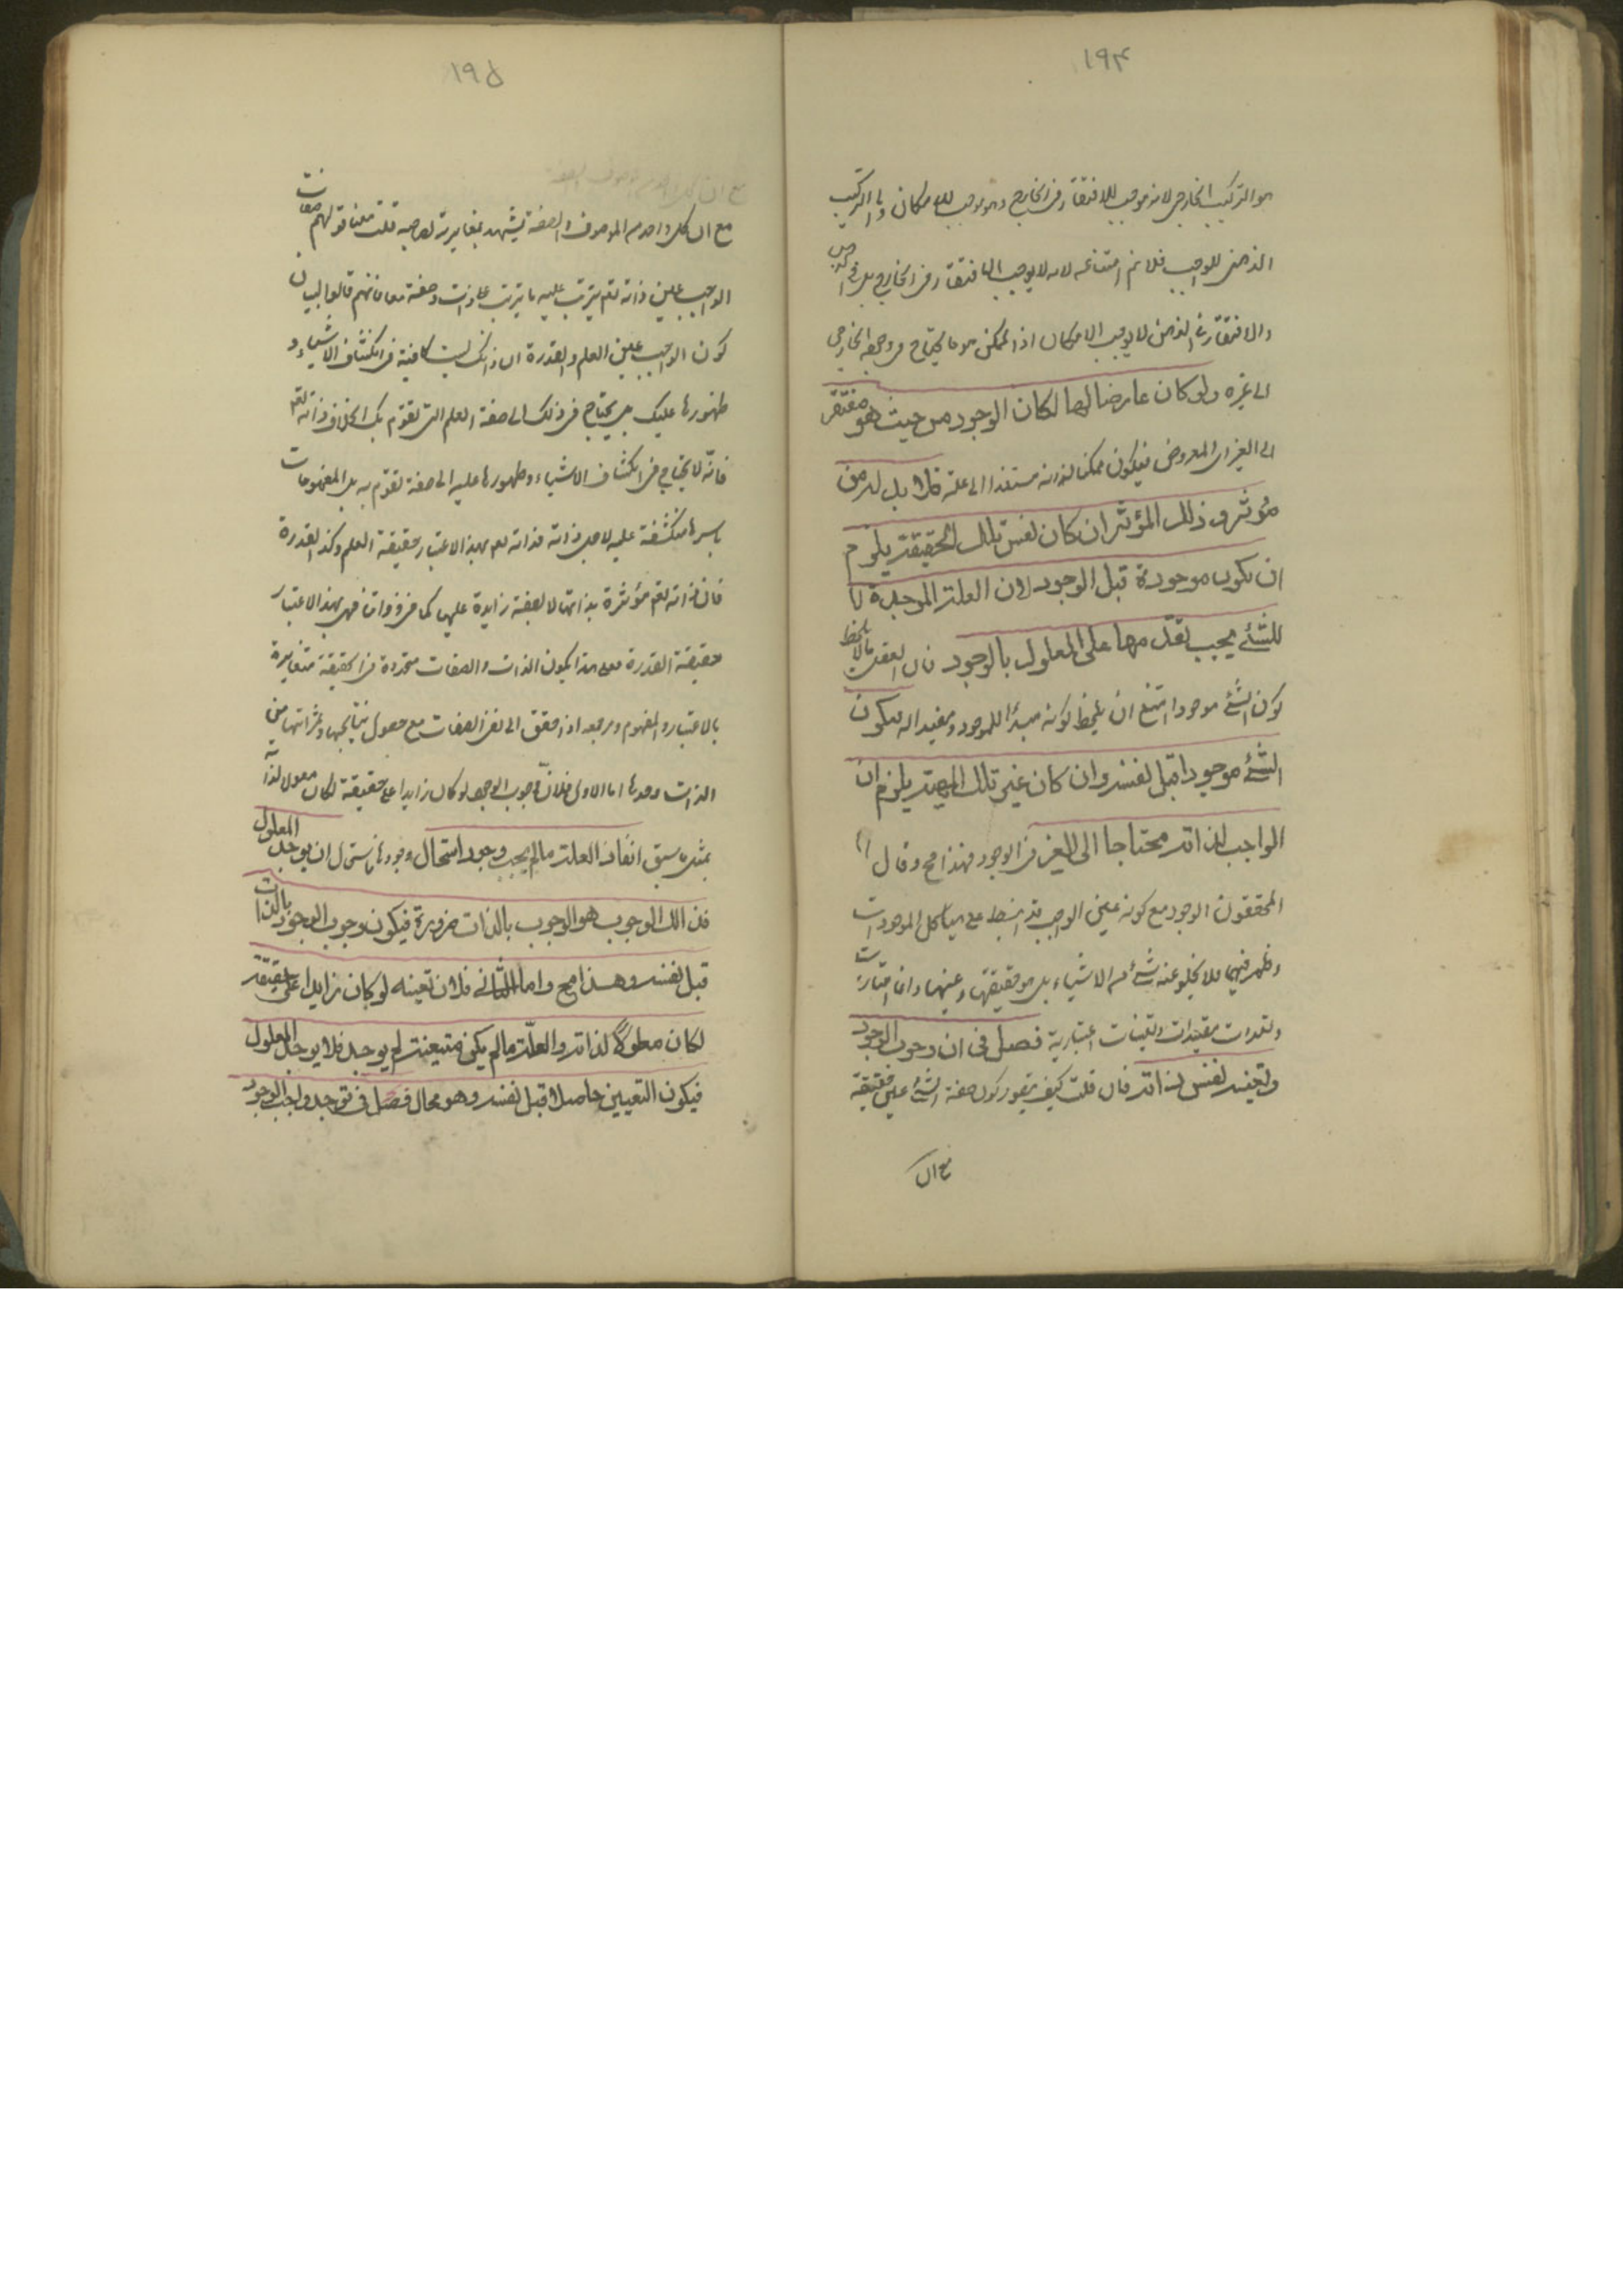 ١٩۴
هو التركيب الخارجى لانه موجب للافتقار فى الخارج وهو موجب للامكان واما التركيب
الذهنى للواجب فلا نم امتناعه لانه لا يوجب الافتقار فى الخارج بل فى الذهن
والافتقار فى الذهن لا يوجب الامكان اذ الممكن هو ما يحتاج فى وجوده الخارجى
الى غيره ولو كان عارضا لها لكان الوجود من حيث هو مفتقر
الى الغير اى المعروض فيكون ممكنا لذاته مستندا الى علة فلا بد له من
مؤثر و ذلك المؤثر ان كان نفس تلك الحقيقة يلزم
ان يكون موجودة قبل الوجود لان العلة الموجدة
للشئ يجب تقدمها على المعلول بالوجود فان العقل ما لم يلاحظ
كون الشئ موجودا امتنع ان يلحظ كونه مبدأ للموجود ومفيدا له فيكون
الشئ موجودا قبل نفسه وان كان غير تلك المهية يلزم ان
الواجب لذاته محتاجا الى الغير فى الوجود فهذا مح وقال
المحققون الوجود مع كونه عين الواجب قد انبسط على هياكل الموجودات
وظهر فيها فلا يخلو عنه شئ من الاشياء بل هو حقيقتها وعينها وانما امتازت
وتعددت بتقيدات وتعينات اعتبارية فصل فى ان وجوب الوجود
وتعينه نفس ذاته فان قلت كيف يتصور كون صفة الشئ عين حقيقته
مع ان
١٩۵
مع ان كل واحد من الموصوف والصفة يشهد بمغايرته لصاحبه قلت معنا قولهم صفات
الواجب عين ذاته ان ذاته تعم يترتب عليه ما يترتب على ذات وصفة معا فانهم قالوا لبيان
كون الواجب عين العلم والقدرة ان ذاتك ليست كافية فى انكشاف الاشياء و
ظهورها عليك بل يحتاج فى ذلك الى صفة العلم التى تقوم بك بخلاف ذاته تعم
فانه لا يحتاج فى انكشاف الاشياء وظهورها عليه الى صفة تقوم به بل المفهومات
باسرها منكشفة عليه لاجل ذاته فذاته تعم بهذا الاعتبار حقيقة العلم وكذا القدرة
فان ذاته تعم مؤثرة بذاتها لا بصفة زايدة عليها كما فى ذواتنا فهى بهذا الاعتبار
حقيقة القدرة فعلى هذا يكون الذات والصفات متحدة فى الحقيقة متغايرة
بالاعتبار والمفهوم ومرجعه اذا حقق الى نفى الصفات مع حصول نتايجها وثمراتها من
الذات وحدها اما الاولى فلان وجوب الوجود لو كان زايدا على حقيقة لكان معلولا لذاته
بمثل ما سبق انفا والعلة ما لم يجب وجود استحال وجودها فاستحال ان يوجد المعلول
فذلك الوجوب هو الوجوب بالذات ضرورة فيكون وجوب الوجود بالذات
قبل نفسه وهذا مح واما الثانى فلان تعينه لو كان زايدا على حقيقة
لكان معلولا لذاته والعلة ما لم يكن متعينة لم يوجد فلا يوجد المعلول
فيكون التعيين حاصلا قبل نفسه وهو محال فصل فى توحيد واجب الوجود